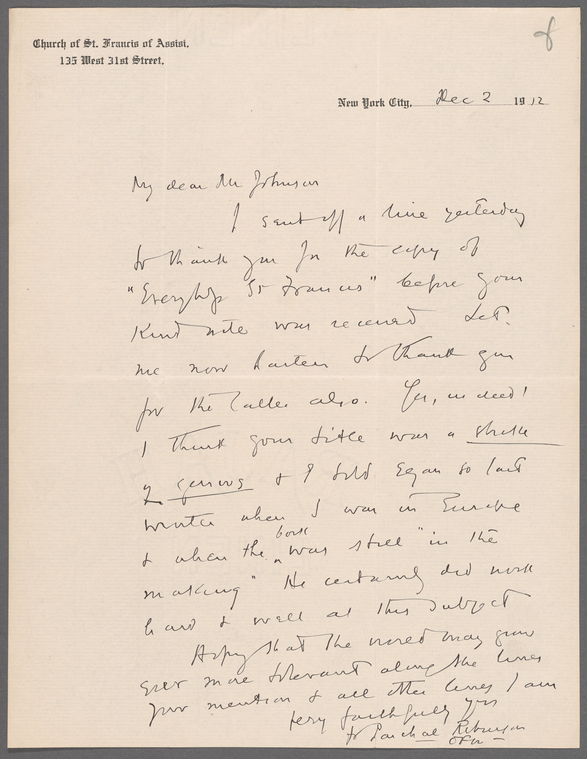 Church of St. Francis of Assisi.
135 West 31st Street.
New York City, Dec 2 1912
My dear Mr Johnson
I sent off a line yesterday
to thank you for the copy of
"Everybody's St Francis" before your
kind note was received Let
me now hasten to thank you
for the latter also. Yes, indeed!
I think your title was a stroke
of genius & I told Egan so last
winter when I was in Europe
& when the book was still "in the
making" He certainly did work
hard & well at this subject
Hoping that the world may grow
ever more tolerant along the lines
you mention & all other lines I am
very faithfully yrs
fr Paschal Robinson
OFM